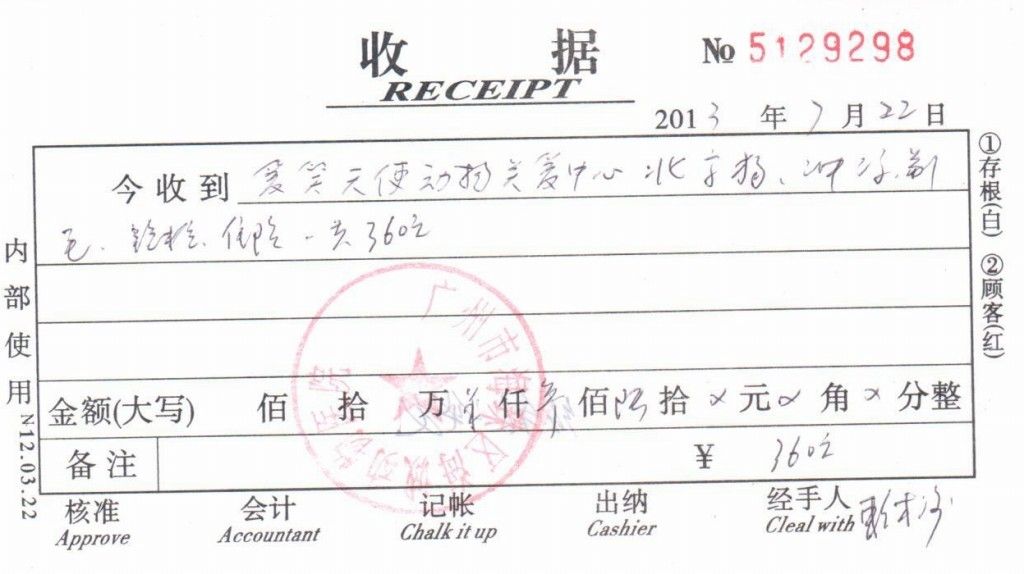 收 据
RECEIPT
№ 5129298
2013 年 7 月 22 日
今收到 爱笑天使动物关爱中心 北京狗、冲凉、剃
毛、 一共360元
金额(大写) 佰 拾 万 仟 叁 佰 陆 拾 元 角 分整
备注 ¥ 360元
核准 会计 记帐 出纳 经手人
Approve Accountant Chalk it up Cashier Cleal with
内部使用 N12.03.22
①存根(白) ②顾客(红)
广州市海珠区